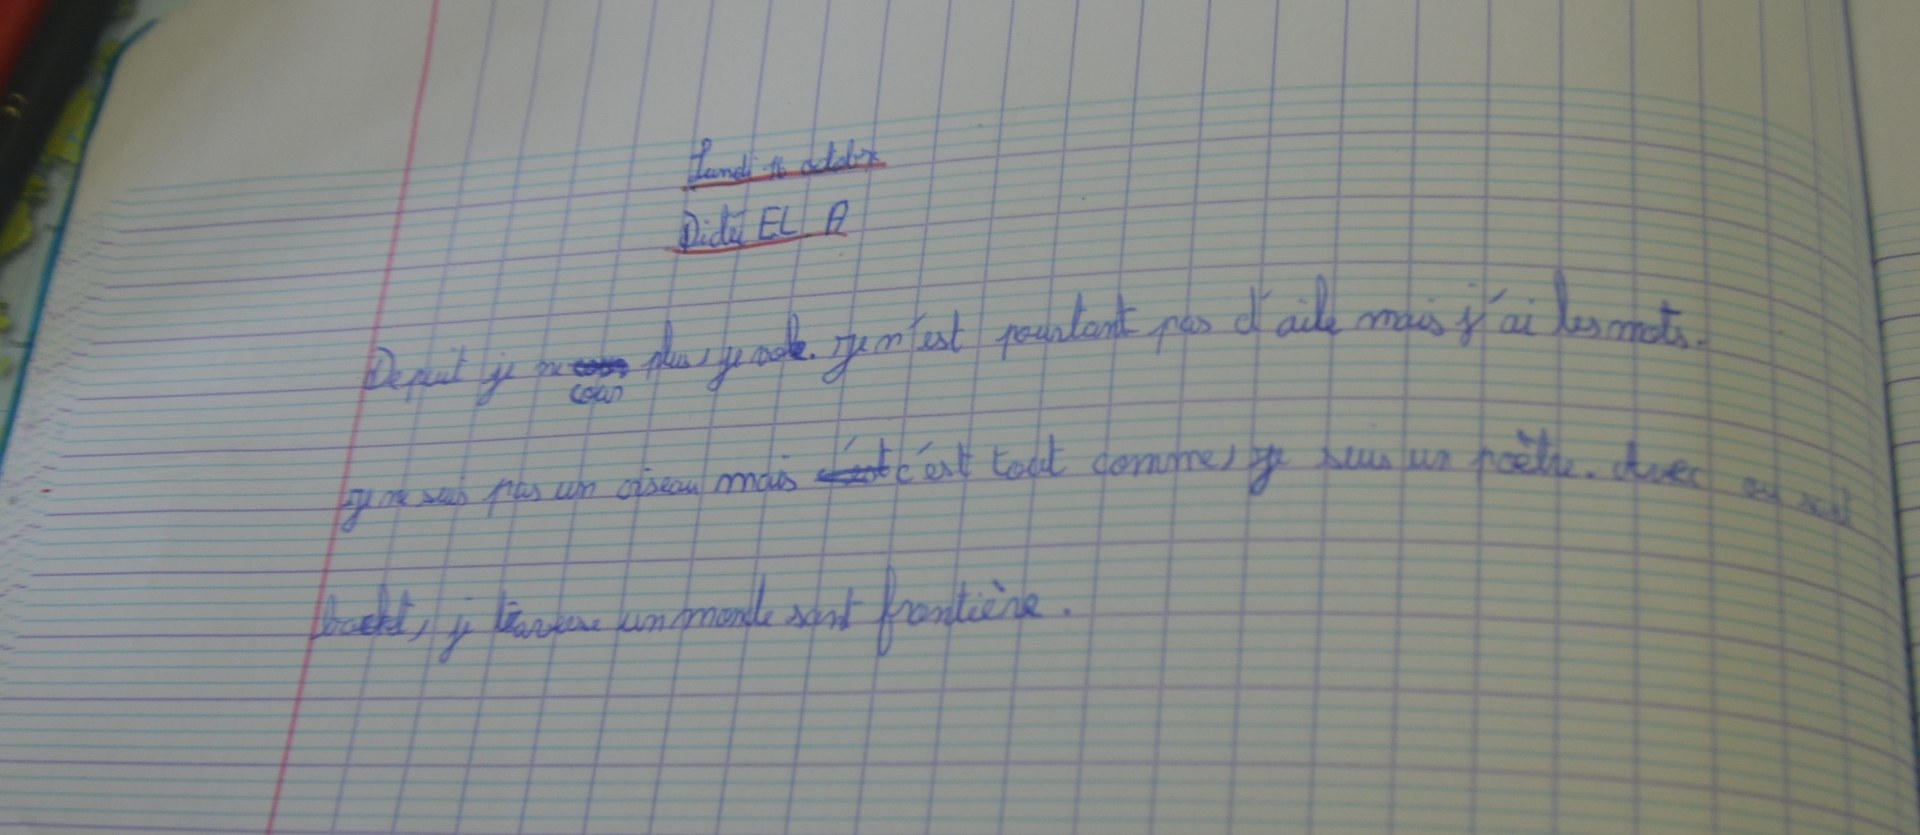 Lundi 16 octobre
Dictée EL A
Depuit je ne cour plus, je vole. Je n'est pourtant pas d'aile mais j'ai les mots.
Je ne suis pas un oiseau mais c'est tout comme, je suis un poètre. Avec ou sant
but, je traverse un monde sant frontière.